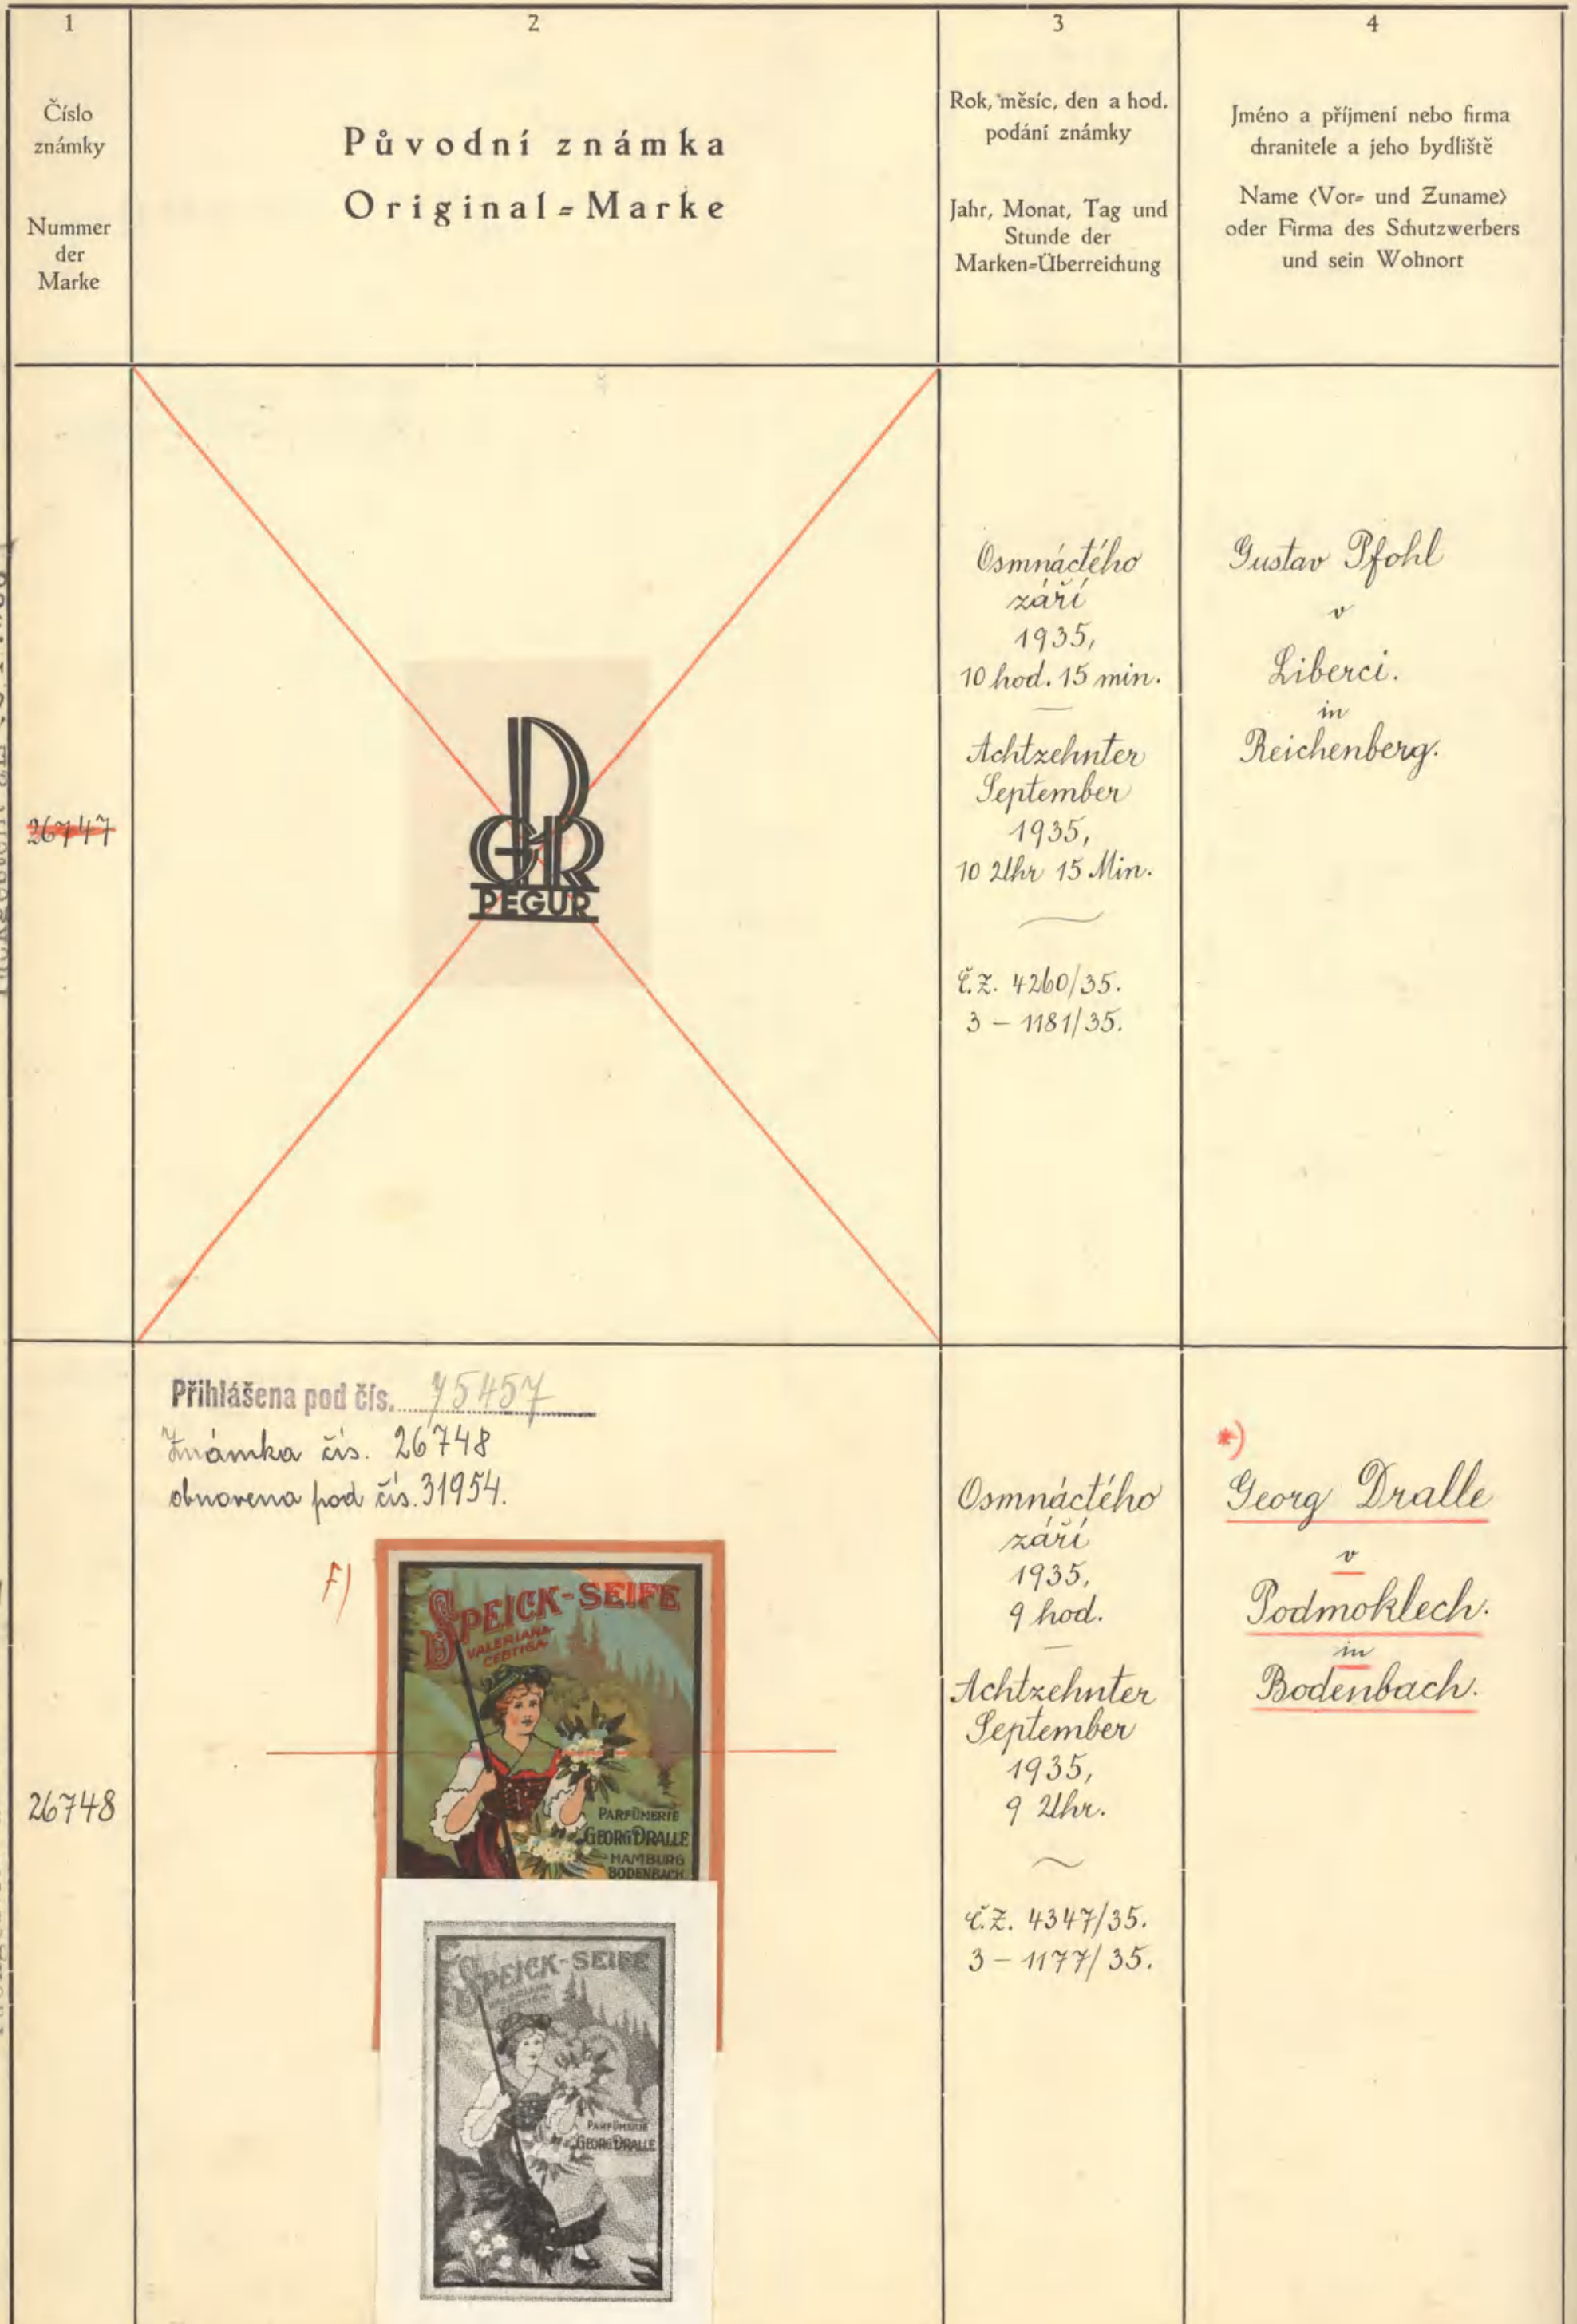 1
Číslo
známky
Nummer
der
Marke
2
Původní známka
Original-Marke
3
Rok, měsíc, den a hod.
podání známky
Jahr, Monat, Tag und
Stunde der
Marken-Überreichung
4
Jméno a příjmení nebo firma
chranitele a jeho bydliště
Name (Vor- und Zuname)
oder Firma des Schutzwerbers
und sein Wohnort
26747
PGR
PEGUR
Osmnáctého
září
1935,
10 hod. 15 min.
Achtzehnter
September
1935,
10 Uhr 15 Min.
Č.Z. 4260/35.
3 – 1181/35.
Gustav Pfohl
v
Liberci.
in
Reichenberg.
26748
Přihlášena pod čís. 75457
Známka čís. 26748
obnovena pod čís. 31954.
F)
SPEICK-SEIFE
VALERIANA
CELTICA
PARFÜMERIE
GEORG DRALLE
HAMBURG
BODENBACH.
SPEICK-SEIFE
PARFÜMERIE
GEORG DRALLE
Osmnáctého
září
1935,
9 hod.
Achtzehnter
September
1935,
9 Uhr.
Č.Z. 4347/35.
3 – 1177/35.
*)
Georg Dralle
v
Podmoklech.
in
Bodenbach.